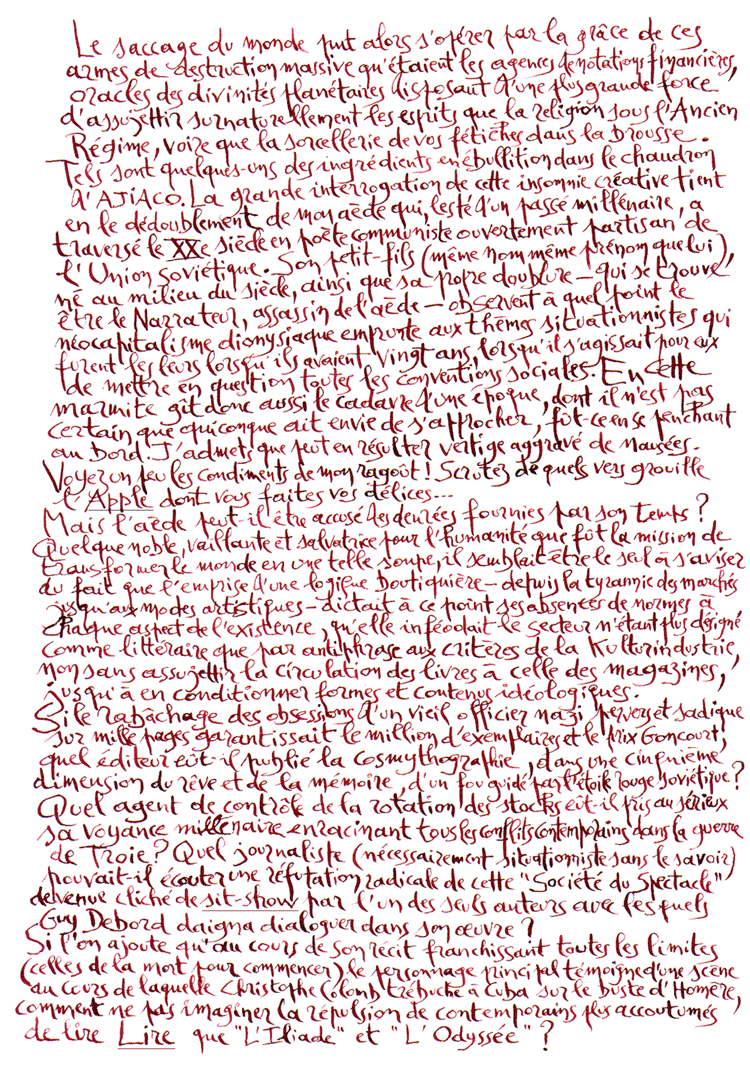 Le saccage du monde put alors s'opérer par la grâce de ces
armes de destruction massive qu'étaient les agences de notations financières,
oracles des divinités planétaires disposant d'une plus grande force
d'assujettir surnaturellement les esprits que la religion sous l'Ancien
Régime, voire que la sorcellerie de vos fétiches dans la brousse.
Tels sont quelques-uns des ingrédients en ébullition dans le chaudron
d'AJIACO. La grande interrogation de cette insomnie créative tient
en le dédoublement de mon aède qui, lesté d'un passé millénaire, a
traversé le XXe siècle en poète communiste ouvertement partisan de
l'Union soviétique. Son petit-fils (même nom même prénom que lui),
né au milieu du siècle, ainsi que sa propre doublure – qui se trouve
être le Narrateur, assassin de l'aède – observent à quel point le
néocapitalisme dionysiaque emprunte aux thèmes situationnistes qui
furent les leurs lorsqu'ils avaient vingt ans, lorsqu'il s'agissait pour eux
de mettre en question toutes les conventions sociales. En cette
marmite gît donc aussi le cadavre d'une époque, dont il n'est pas
certain que quiconque ait envie de s'approcher, fût-ce en se penchant
au bord. J'admets que peut en résulter vertige aggravé de nausées.
Voyez un peu les condiments de mon ragoût ! Scrutez de quels vers grouille
l'Apple dont vous faites vos délices...
Mais l'aède peut-il être accusé des denrées fournies par son temps ?
Quelque noble, vaillante et salvatrice pour l'humanité que fût la mission de
transformer le monde en une telle soupe, il semblait être le seul à s'aviser
du fait que l'emprise d'une logique boutiquière – depuis la tyrannie des marchés
jusqu'aux modes artistiques – dictait à ce point ses absences de normes à
chaque aspect de l'existence, qu'elle inféodait le secteur n'étant plus désigné
comme littéraire que par antiphrase aux critères de la Kulturindustrie,
non sans assujettir la circulation des livres à celle des magazines,
jusqu'à en conditionner formes et contenus idéologiques.
Si le rabâchage des obsessions d'un vieil officier nazi pervers et sadique
sur mille pages garantissait le million d'exemplaires et le Prix Goncourt,
quel éditeur eût-il publié la cosmythographie, dans une cinquième
dimension du rêve et de la mémoire, d'un fou guidé par l'étoile rouge soviétique ?
Quel agent de contrôle de la rotation des stocks eût-il pris au sérieux
sa voyance millénaire enracinant tous les conflits contemporains dans la guerre
de Troie ? Quel journaliste (nécessairement situationniste sans le savoir)
pouvait-il écouter une réfutation radicale de cette "Société du Spectacle"
devenue cliché de sit-show par l'un des seuls auteurs avec lesquels
Guy Debord daigna dialoguer dans son œuvre ?
Si l'on ajoute qu'au cours de son récit franchissant toutes les limites
(celles de la mort pour commencer) le personnage principal témoigne d'une scène
au cours de laquelle Christophe Colomb trébuche à Cuba sur le buste d'Homère,
comment ne pas imaginer la répulsion de contemporains plus accoutumés
de lire Lire que "L'Iliade" et "L'Odyssée" ?